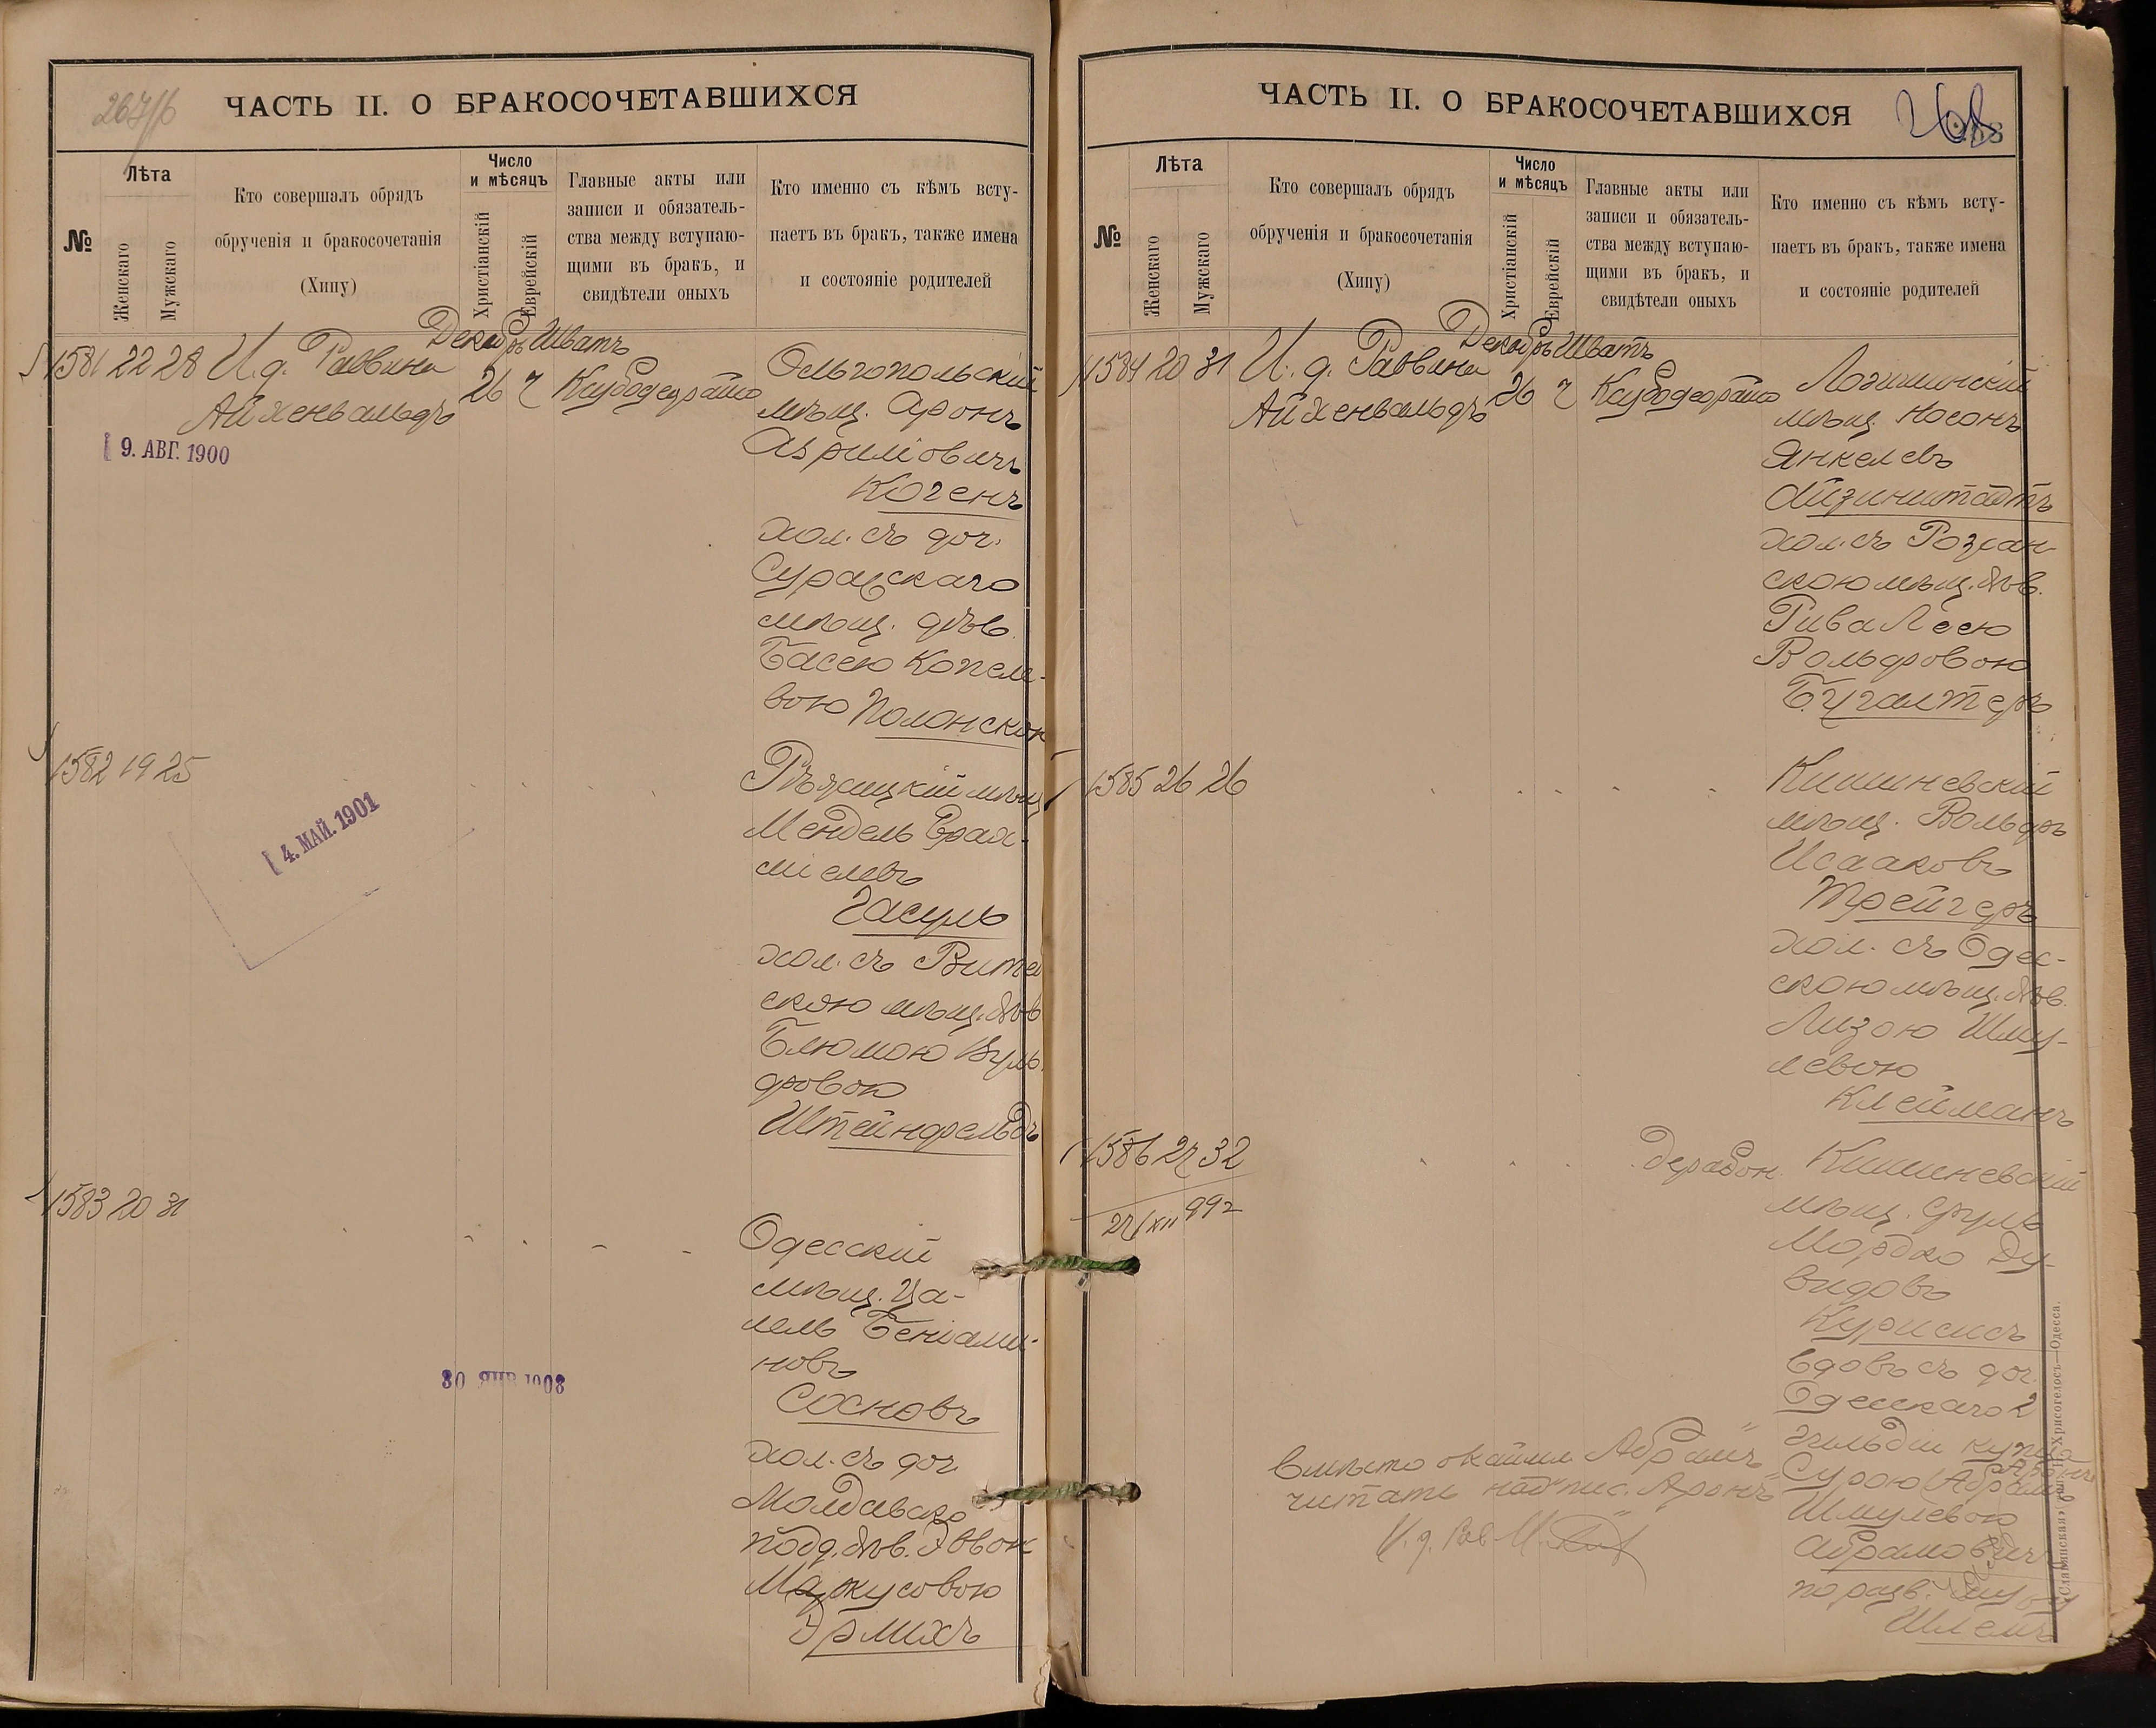 267/б
ЧАСТЬ II. О БРАКОСОЧЕТАВШИХСЯ
№
Лѣта
Женскаго
Мужскаго
Кто совершалъ обрядъ
обрученія и бракосочетанія
(Хипу)
Число
и мѣсяцъ
Христіанскій
Еврейскій
Главные акты или
записи и обязатель-
ства между вступаю-
щими въ бракъ, и
свидѣтели оныхъ
Кто именно съ кѣмъ всту-
паетъ въ бракъ, также имена
и состояніе родителей
Декабрь Шватъ
1581 22 28 И. д. Раввина 26 7
Айхенвальдъ
9. АВГ. 1900
Ольгопольскій
мѣщ. Аронъ
Азриліовичъ
Когенъ
хол. съ доч.
Суражскаго
мѣщ. дѣв.
Басею Копеле-
вою Полонскою
1582 19 25
4. МАЙ. 1901
мѣщ
Мендель Ерах-
міелевъ
Гасуль
хол. съ Витеб
скою мѣщ. дѣв
Блюмою Вуль
фовою
Штейнфельдъ
1583 20 31
30 ЯНВ 1908
Одесскій
мѣщ. Ца-
лель Беніами-
новъ
Сосновъ
хол. съ доч
Молдавско
подд. дѣв.
Маркусовою
Эрлихъ
268
ЧАСТЬ II. О БРАКОСОЧЕТАВШИХСЯ
№
Лѣта
Женскаго
Мужскаго
Кто совершалъ обрядъ
обрученія и бракосочетанія
(Хипу)
Число
и мѣсяцъ
Христіанскій
Еврейскій
Главные акты или
записи и обязатель-
ства между вступаю-
щими въ бракъ, и
свидѣтели оныхъ
Кто именно съ кѣмъ всту-
паетъ въ бракъ, также имена
и состояніе родителей
Декабрь Шватъ
1584 20 31 И. д. Раввина 26 7
Айхенвальдъ
Логишинскій
мѣщ. Носонъ
Янкелевъ
Айзинштадтъ
хол. съ Розіан-
скою мѣщ. дѣв.
Рива Леею
Вольфовою
Бугалтеръ
1585 26 26
Кишиневскій
мѣщ. Вольфъ
Исааковъ
Трейгеръ
хол. съ Одес-
скою мѣщ. дѣв.
Лизою Шму-
левою
Клейманъ
1586 27 32
27/XII 992
Дерабон.
Кишиневскій
мѣщ. Сруль
Мордко Ду-
видовъ
Курисисъ
вдов. съ доч.
Одесскаго 2
гильдіи купца
Аронъ
Сурою Абрамъ
Шмулевою
Абрамовичъ
по разв.
Шлемъ
вмѣсто Абрамъ
читать надпис. Аронъ
И. д. Рав.
«Славянская» тип. Н. Хрисогелосъ—Одесса.